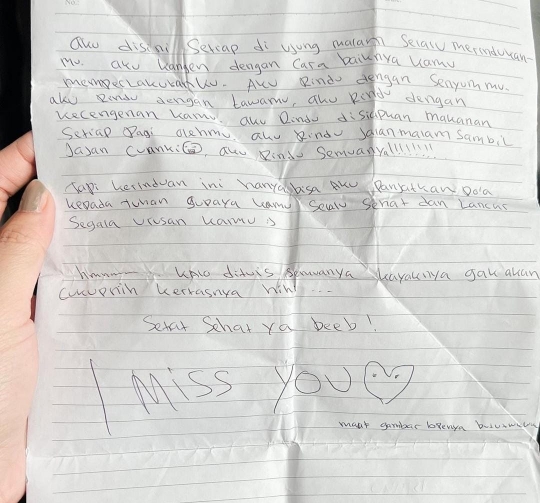 aku disini setiap di ujung malam selalu merindukan-
mu. aku kangen dengan cara baiknya kamu
memperlakukanku. Aku Rindu dengan senyummu.
aku Rindu dengan tawamu, aku Rindu dengan
kecengengan kamu, aku Rindu disiapkan makanan
setiap pagi olehmu, aku Rindu jalan malam sambil
Jajan Cuanki, aku Rindu semuanya!!!!!!!!
Tapi kerinduan ini hanya bisa aku panjatkan Doa
kepada tuhan supaya kamu selalu sehat dan Lancar
segala urusan kamu :)
hmmm kalo ditulis semuanya kayaknya gak akan
cukup nih kertasnya hihi...
Sehat Sehat ya beeb!
I MISS YOU
maaf gambar lovenya